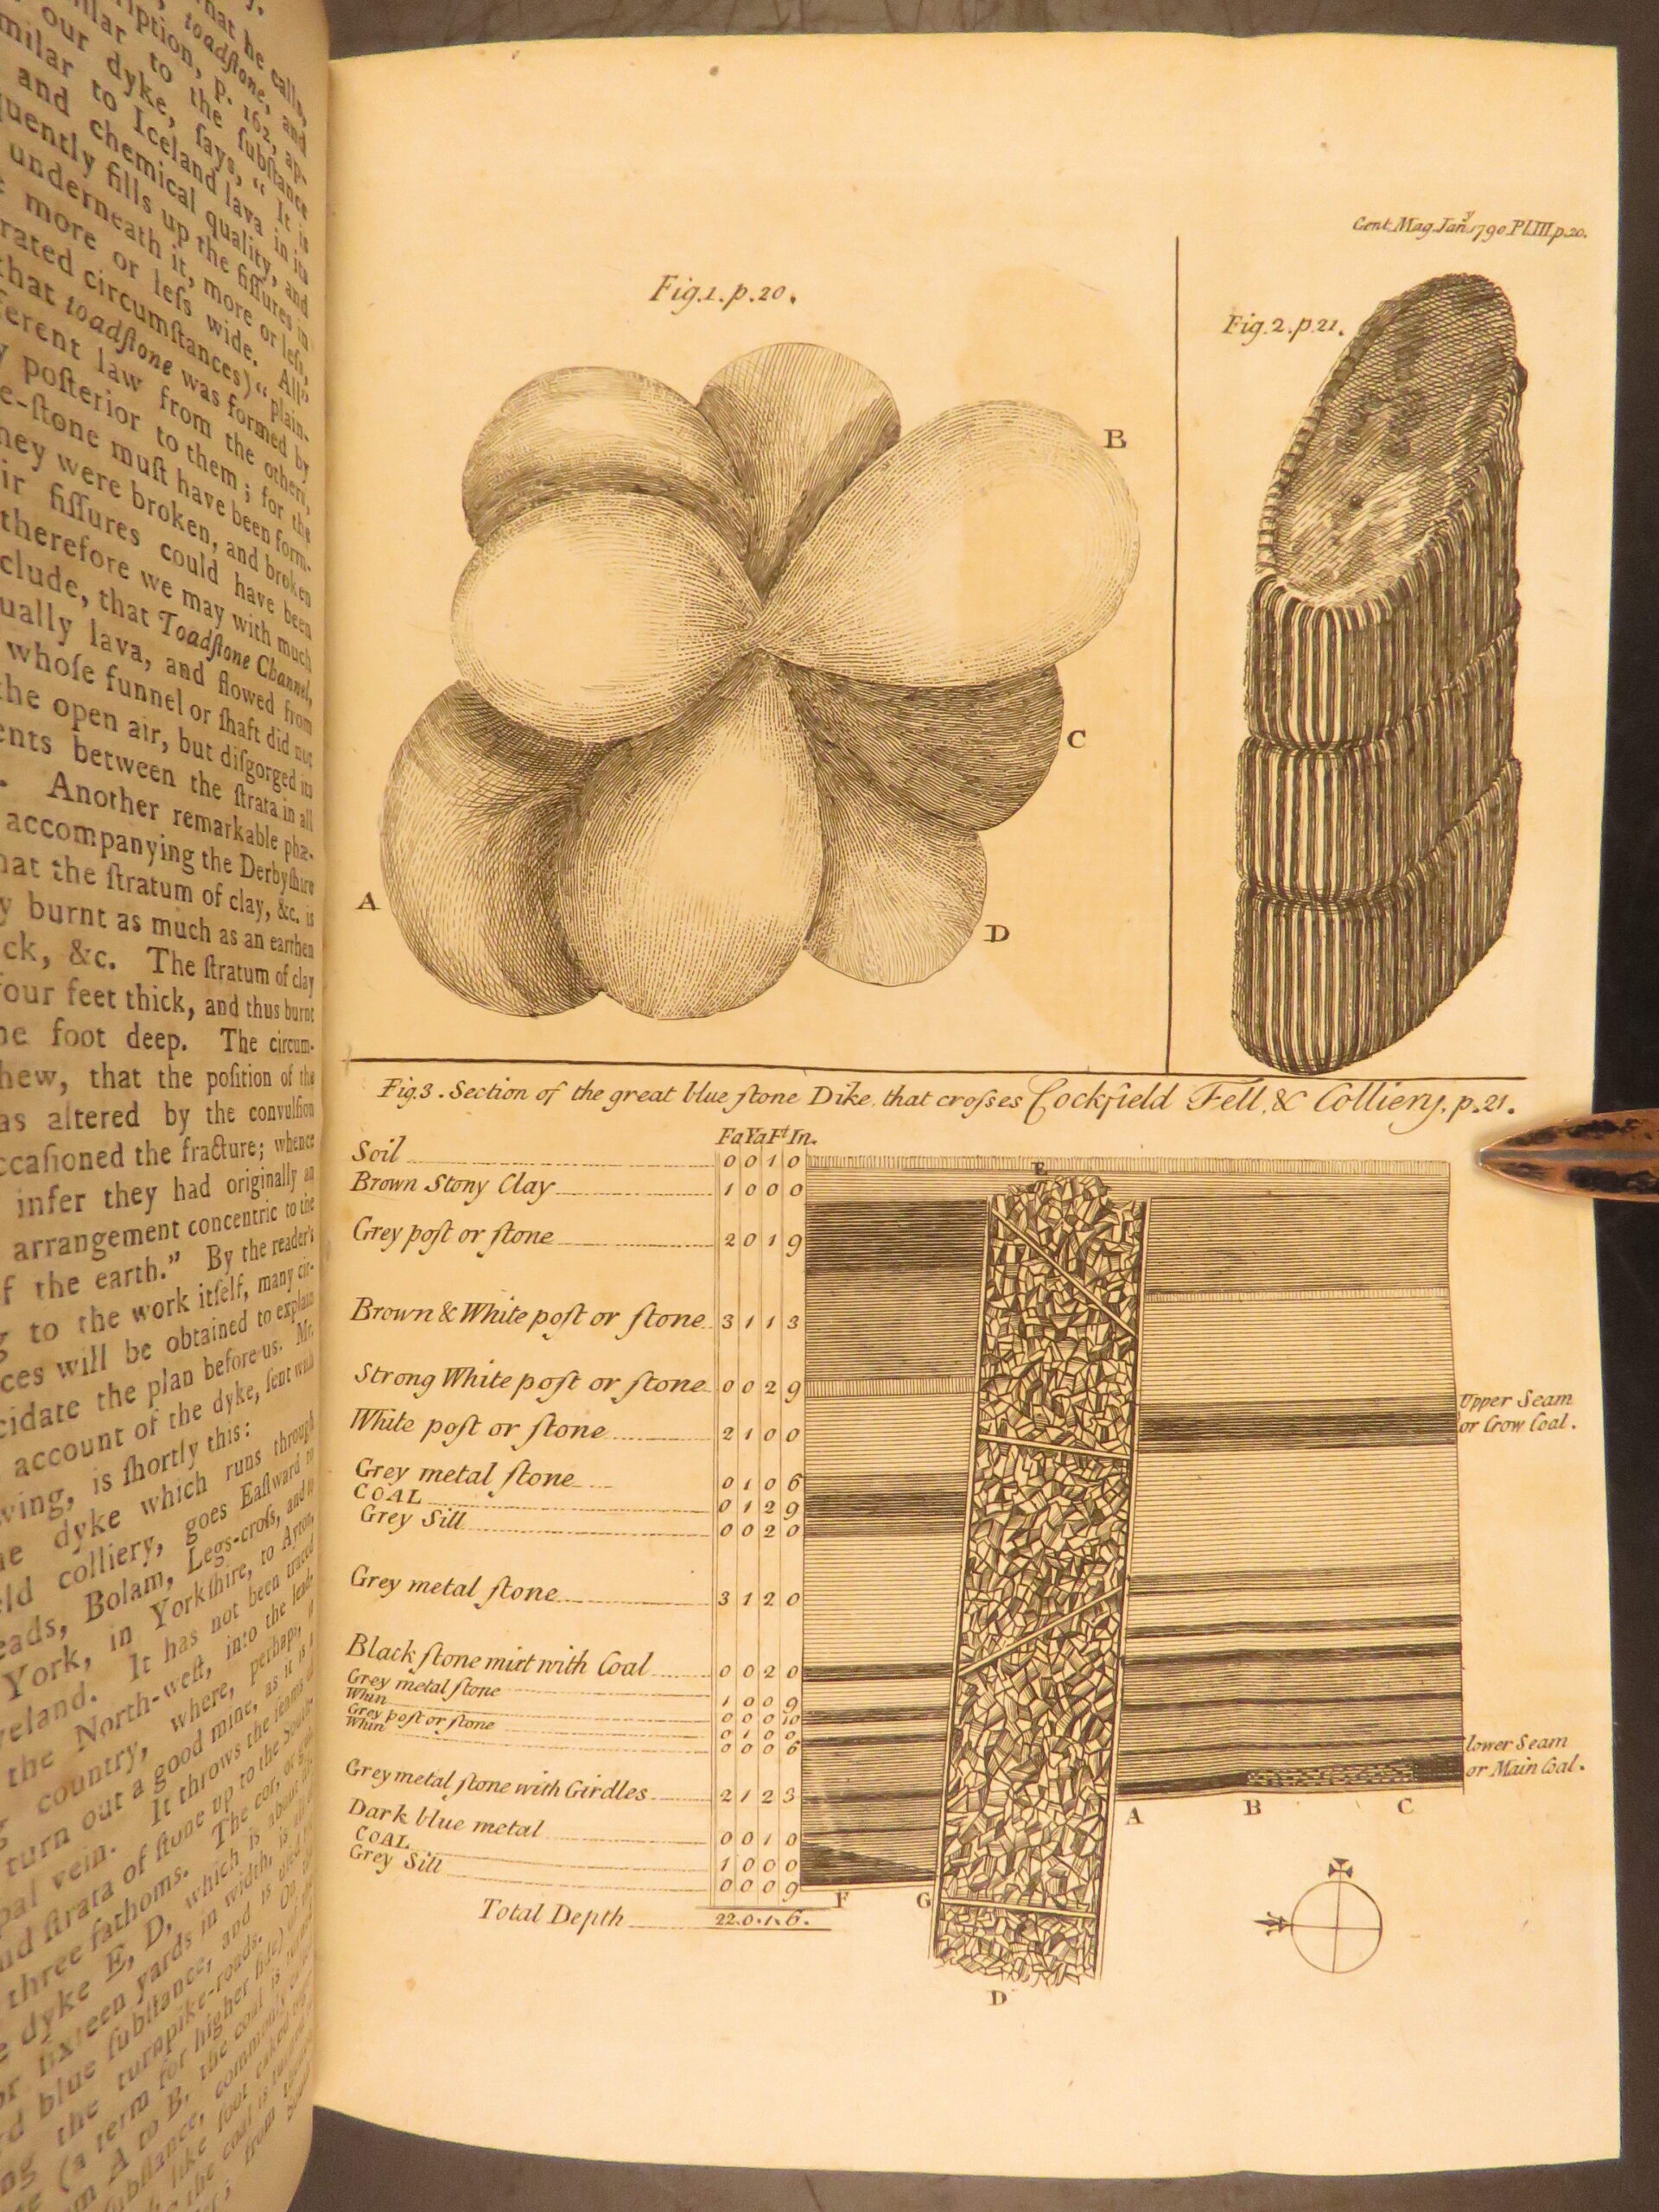 hat he calls,
toadſtone, and
iption, p. 162, ap-
to the ſubſtance
our dyke, ſays, “ It is
milar to Iceland lava in its
and chemical quality, and
quently fills up the fiſſures in
underneath it, more or leſs,
more or leſs wide. All”
rated circumſtances) “ plain-
that toadſtone was formed by
ferent law from the others,
y poſterior to them ; for the
e-ſtone muſt have been form-
hey were broken, and broken
ir fiſſures could have been
therefore we may with much
clude, that Toadſtone Channel,
ually lava, and flowed from
whoſe funnel or ſhaft did not
the open air, but diſgorged its
ents between the ſtrata in all
Another remarkable phæ-
accompanying the Derbyſhire
hat the ſtratum of clay, &c. is
y burnt as much as an earthen
ck, &c. The ſtratum of clay
four feet thick, and thus burnt
ne foot deep. The circum-
hew, that the poſition of the
as altered by the convulſion
ccaſioned the fracture; whence
infer they had originally an
arrangement concentric to the
f the earth.” By the reader's
g to the work itſelf, many cir-
ces will be obtained to explain
cidate the plan before us. Mr.
account of the dyke, ſent with
wing, is ſhortly this :
he dyke which runs through
eld colliery, goes Eaſtward to
eads, Bolam, Legs-croſs, and to
York, in Yorkſhire, to Ayton,
veland. It has not been traced
the North-weſt, into the lead-
country, where, perhaps,
turn out a good mine, as it is
pal vein. It throws the ſeams
nd ſtrata of ſtone up to the South-
three fathoms.
e dyke E, D, which is about
or ſixteen yards in width, is
d blue ſubſtance, and is uſed
ng the turnpike-roads. On
(a term for higher ſide) of the
m A to B, the coal is
Gent. Mag. Jan.y 1790. Pl.III p.20.
Fig.1.p.20.
Fig.2.p.21.
B
C
A
D
Fig.3. Section of the great blue ſtone Dike that croſses Cockfield Fell, & Colliery, p.21.
Fa Ya Ft In.
Soil 0 0 1 0
E
Brown Stony Clay 1 0 0 0
Grey poſt or ſtone 2 0 1 9
Brown & White poſt or ſtone 3 1 1 3
Strong White poſt or ſtone 0 0 2 9
Upper Seam
or Crow Coal.
White poſt or ſtone 2 1 0 0
Grey metal ſtone 0 1 0 6
COAL 0 1 2 9
Grey Sill 0 0 2 0
Grey metal ſtone 3 1 2 0
Black ſtone mixt with Coal 0 0 2 0
Grey metal ſtone 1 0 0 9
Whin 0 0 0 10
Grey poſt or ſtone 0 1 0 0
Whin 0 0 0 6
lower Seam
or Main Coal.
Grey metal ſtone with Girdles 2 1 2 3
A B C
Dark blue metal 0 0 1 0
COAL 1 0 0 0
Grey Sill 0 0 0 9
F G
Total Depth 22.0.1.6.
D